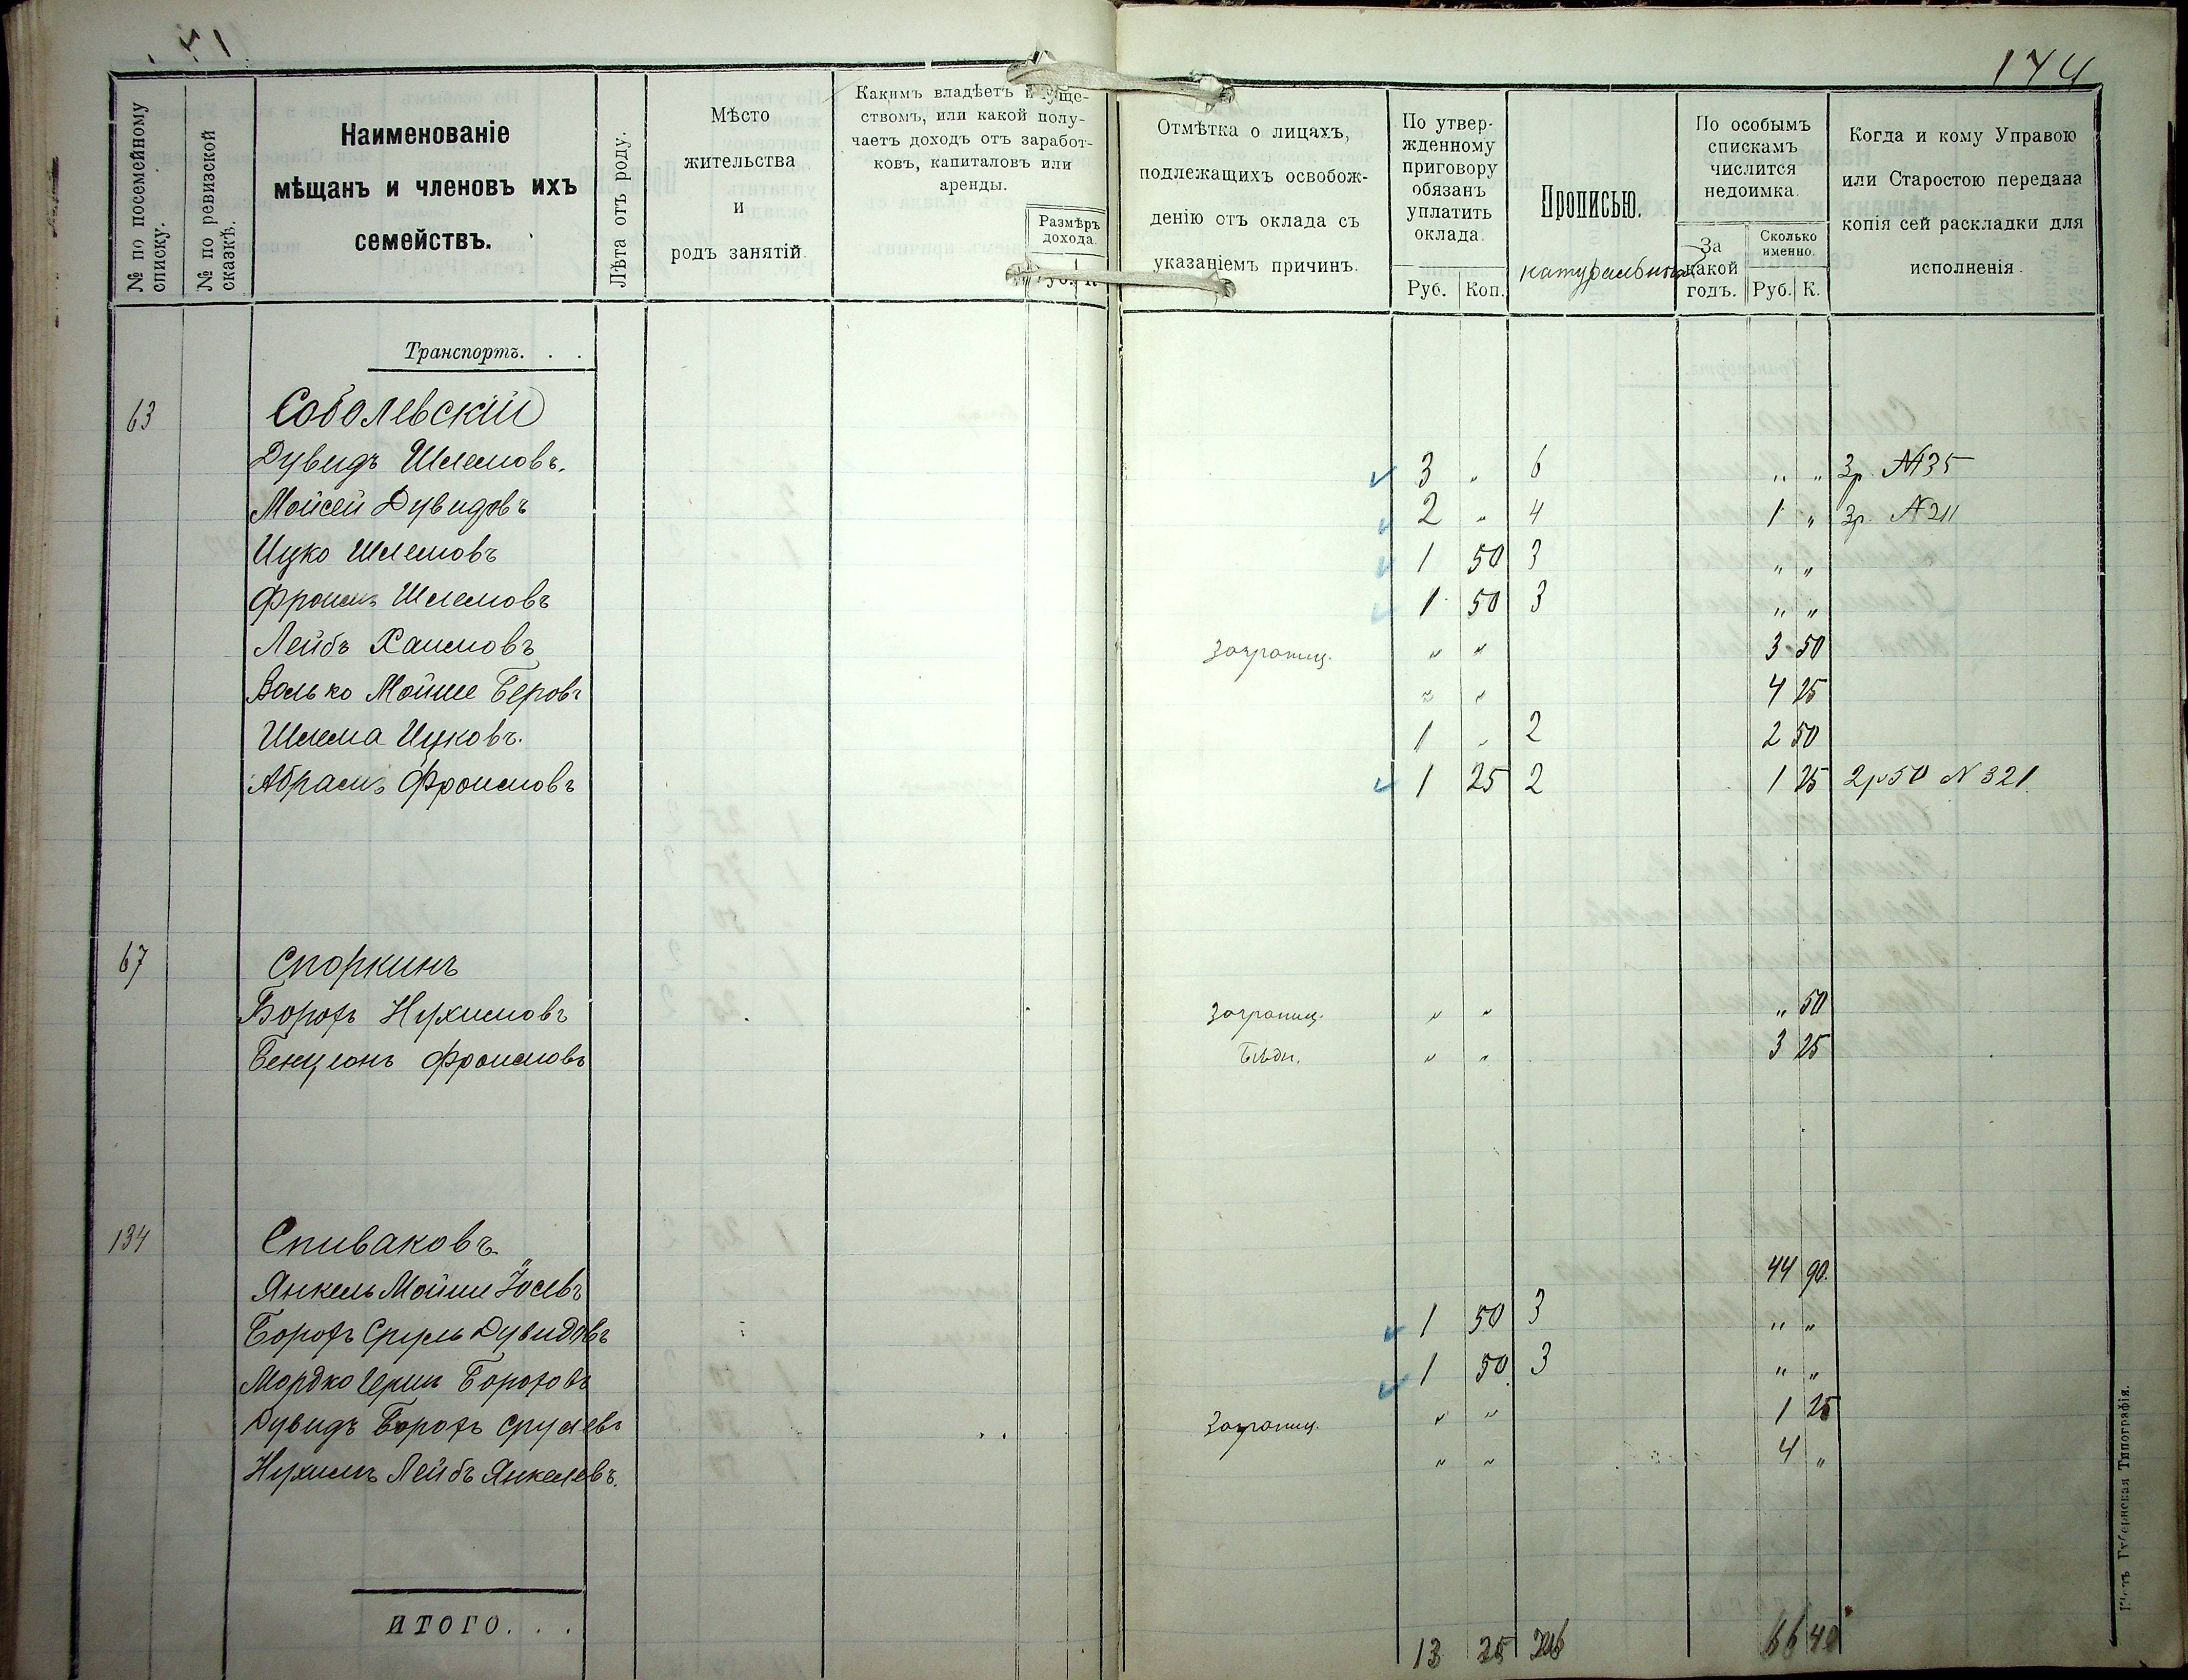 174
№ по посемейному списку.
№ по ревизской сказкѣ.
Наименованіе
мѣщанъ и членовъ ихъ
семействъ.
Лѣта отъ роду.
Мѣсто
жительства
и
родъ занятій.
Какимъ владѣетъ
ствомъ, или какой полу-
чаетъ доходъ отъ заработ-
ковъ, капиталовъ или
аренды.
Размѣръ
дохода.
Отмѣтка о лицахъ,
подлежащихъ освобож-
денію отъ оклада съ
указаніемъ причинъ.
По утвер-
жденному
приговору
обязанъ
уплатить
оклада.
Руб. Коп.
Прописью.
натуральный
По особымъ
спискамъ
числится
недоимка.
За
какой
годъ.
Сколько
именно.
Руб. К.
Когда и кому Управою
или Старостою передана
копія сей раскладки для
исполненія.
Транспортъ. . .
63 Соболевскій
Дувидъ Шлемовъ. 3 „ 6 „ „ 3р. №135
Мойсей Дувидовъ 2 „ 4 1 „ 3р. №211
Ицко Шлемовъ 1 50 3 „ „
Фроимъ Шлемовъ 1 50 3 „ „
Лейбъ Хаимовъ заграниц. „ „ 3 50
Волько Мойше Беровъ „ „ 4 25
Шлема Ицковъ. 1 „ 2 2 50
Абрамъ Фроимовъ 1 25 2 1 25 2р50 N 321
67 Споркинъ
Борохъ Нухимовъ заграниц. „ „ „ 50
Бенціонъ Фроимовъ бѣдн. „ „ 3 25
134 Спиваковъ
Янкель Мойше Іосевъ 44 90.
Борохъ Сруль Дувидовъ 1 50 3 „ „
Мордко Герши Бороховъ 1 50 3 „ „
Дувидъ Борохъ Срулевъ заграниц. „ „ 1 25
Нухимъ Лейбъ Янкелевъ. „ „ 4 „
ИТОГО. . .
13 25 66 40
Губернская Типографія.